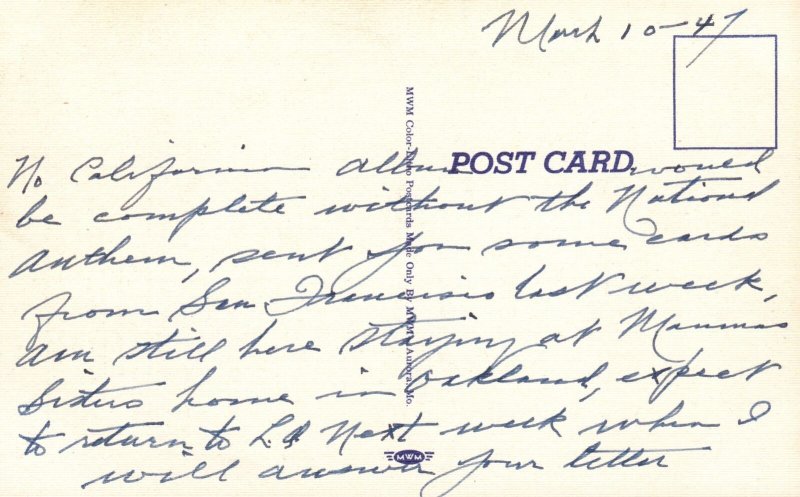 March 10-47
No California album would
be complete without the National
anthem, sent you some cards
from San Francisco last week,
am still here staying at Mammas
Sisters home in Oakland, expect
to return to L A Next week when I
will answer your letter
POST CARD
MWM Color-Litho Postcards Made Only By MWM, Aurora, Mo.
MWM